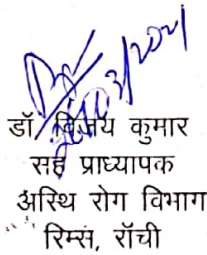 डॉ. विजय कुमार
सह प्राध्यापक
अस्थि रोग विभाग
रिम्स, रॉची